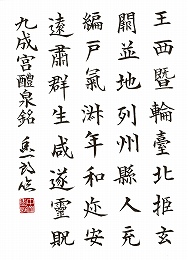 王西曁輪臺北拒玄
闕並地列州縣人充
編戸氣淑年和迩安
遠肅群生咸遂靈貺
九成宮醴泉銘